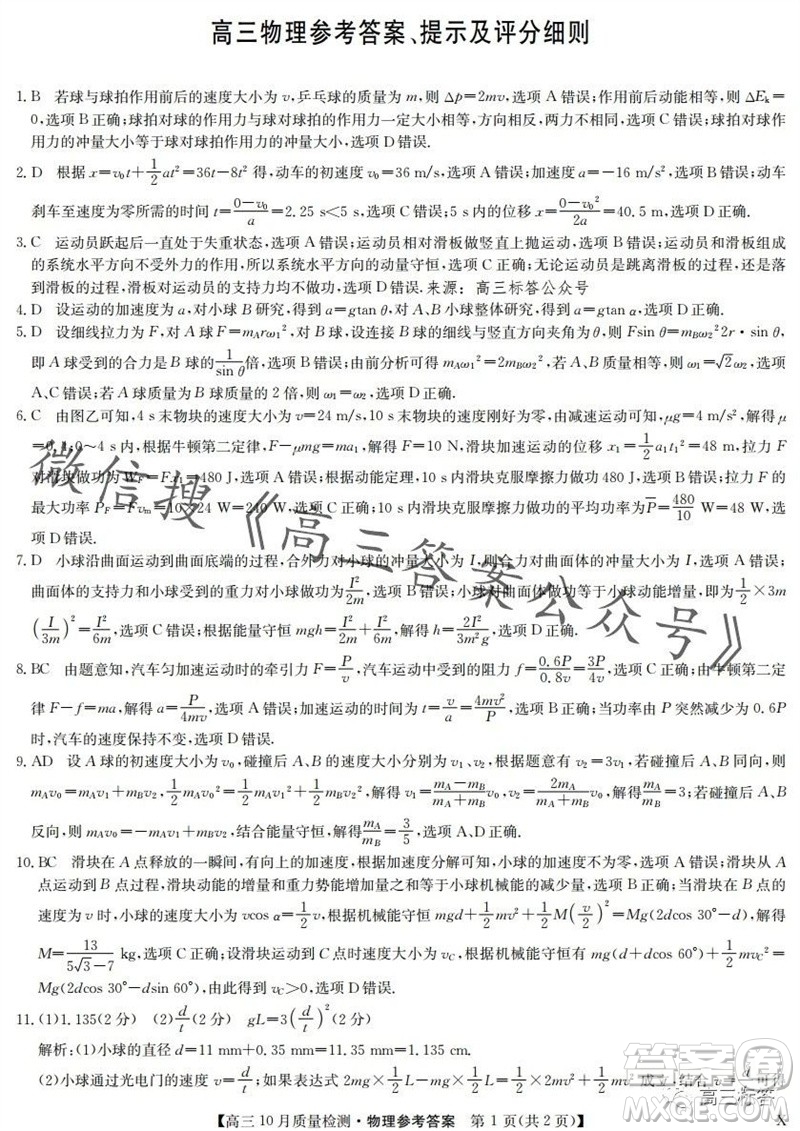 高三物理参考答案、提示及评分细则
1. B 若球与球拍作用前后的速度大小为 v,乒乓球的质量为 m,则 Δp=2mv,选项 A 错误;作用前后动能相等,则 ΔEₖ=
0,选项 B 正确;球拍对球的作用力与球对球拍的作用力一定大小相等,方向相反,两力不相同,选项 C 错误;球拍对球作
用力的冲量大小等于球对球拍作用力的冲量大小,选项 D 错误.
2. D 根据 x=v₀t+1/2 at²=36t-8t² 得,动车的初速度 v₀=36 m/s,选项 A 错误;加速度 a=-16 m/s²,选项 B 错误;动车
刹车至速度为零所需的时间 t=(0-v₀)/a=2.25 s<5 s,选项 C 错误;5 s 内的位移 x=(0-v₀²)/2a=40.5 m,选项 D 正确.
3. C 运动员跃起后一直处于失重状态,选项 A 错误;运动员和滑板做竖直上抛运动,选项 B 错误;运动员和滑板组成
的系统水平方向不受外力的作用,所以水平方向动量守恒,选项 C 正确;无论运动员是跳离滑板的过程,还是落
到滑板的过程,滑板对运动员的支持力均不做功,选项 D 错误.来源:高三标答公众号
4. D 设运动的加速度为 a,对小球 B 研究,得到 a=gtan θ,对 A、B 小球整体研究,得到 a=gtan α,选项 D 正确.
5. D 设细线拉力为 F,对 A 球,F=m_Arω₁²,对 B 球,设连接 B 球的细线与竖直方向夹角为 θ,则 Fsin θ=m_Bω₂²2r·sin θ,
即 A 球受到的合力是 B 球的 1/sin θ 倍,选项 A、B 错误;由前分析可得 m_Aω₁²=2m_Bω₂²,若 A、B 质量相等,则 ω₁=√2ω₂,选项
C 错误;A 球质量为 B 球质量的 2 倍,则 ω₁=ω₂,选项 D 正确.
6. C 由图乙可知,4 s 末物块的速度大小为 v=24 m/s,10 s 末物块的速度刚好为零,由减速运动可知,μg=4 m/s²,解得 μ
=0.4;0~4 s 内,根据牛顿第二定律,F-μmg=ma₁,解得 F=10 N,滑块加速运动的位移 x₁=1/2 a₁t₁²=48 m,拉力 F
对滑块做功为 W_F=Fx₁=480 J,选项 A 错误;10 s 内滑块克服摩擦力做功 480 J,选项 B 错误;拉力 F 的
最大功率 P_F=Fvₘ=10×24 W=240 W,选项 C 正确;10 s 内滑块克服摩擦力做功的平均功率为 P̅=480/10 W=48 W,选
项 D 错误.
7. D 小球沿曲面运动到曲面底端的过程,合外力对小球的冲量大小为 I,则合力对曲面体的冲量大小为 I,选项 A 错误;
曲面体的支持力和小球重力对小球做功为 I²/2m,选项 B 错误;小球对曲面体做功等于曲面体的动能,即为 1/2×3m
(I/3m)²=I²/6m,选项 C 错误;根据能量守恒 mgh=I²/2m+I²/6m,解得 h=2I²/3m²g,选项 D 正确.
8. BC 由题意知,汽车匀加速运动时的牵引力 F=P/v,汽车运动中受到的阻力 f=0.6P/0.8v=3P/4v,选项 C 正确;由牛顿第二定
律 F-f=ma,解得 a=P/4mv,选项 A 错误;加速运动的时间为 t=v/a=4mv²/P,选项 B 正确;当功率由 P 突减为 0.6P
时,汽车的速度保持不变,选项 D 错误.
9. AD 设 A 球的初速度大小为 v₀,碰撞后 A、B 的速度大小分别为 v₁、v₂,根据题意有 v₂=3v₁,若碰撞后 A、B 同向,则
m_Av₀=m_Av₁+m_Bv₂,1/2 m_Av₀²=1/2 m_Av₁²+1/2 m_Bv₂²,解得 v₁=(m_A-m_B)/(m_A+m_B) v₀,v₂=2m_A/(m_A+m_B) v₀,解得 m_A/m_B=3;若碰撞后 A、B
反向,则 m_Av₀=-m_Av₁+m_Bv₂,结合能量守恒,解得 m_A/m_B=3/5,选项 A、D 正确.
10. BC 滑块在 A 点释放的一瞬间,有向上的加速度,根据速度分解可知,小球的加速度不为零,选项 A 错误;滑块从 A 点
运动到 B 点过程中,滑块动能的增量和重力势能增加量之和等于小球机械能的减少量,选项 B 正确;当滑块到 B 点
速度为 v 时,小球的速度大小为 vcos α=v/2,根据机械能守恒 mgd+1/2 mv²+1/2 M(v/2)²=Mg(2dcos 30°-d),解得
M=13/(5√3-7) kg,选项 C 正确;设滑块运动到 C 点时速度大小为 v_C,根据机械能守恒有 mg(d+dcos 60°)+1/2 mv_C²=
Mg(2dcos 30°-dsin 60°),由此得到 v_C>0,选项 D 错误.
11. (1)1.135(2 分) (2)d/t(2 分) gL=3(d/t)²(2 分)
解析:(1)小球的直径 d=11 mm+0.35 mm=11.35 mm=1.135 cm.
微信搜《高三答案公众号》
答案圈
高三标答
【高三 10 月质量检测·物理参考答案 第 1 页(共 2 页)】 X